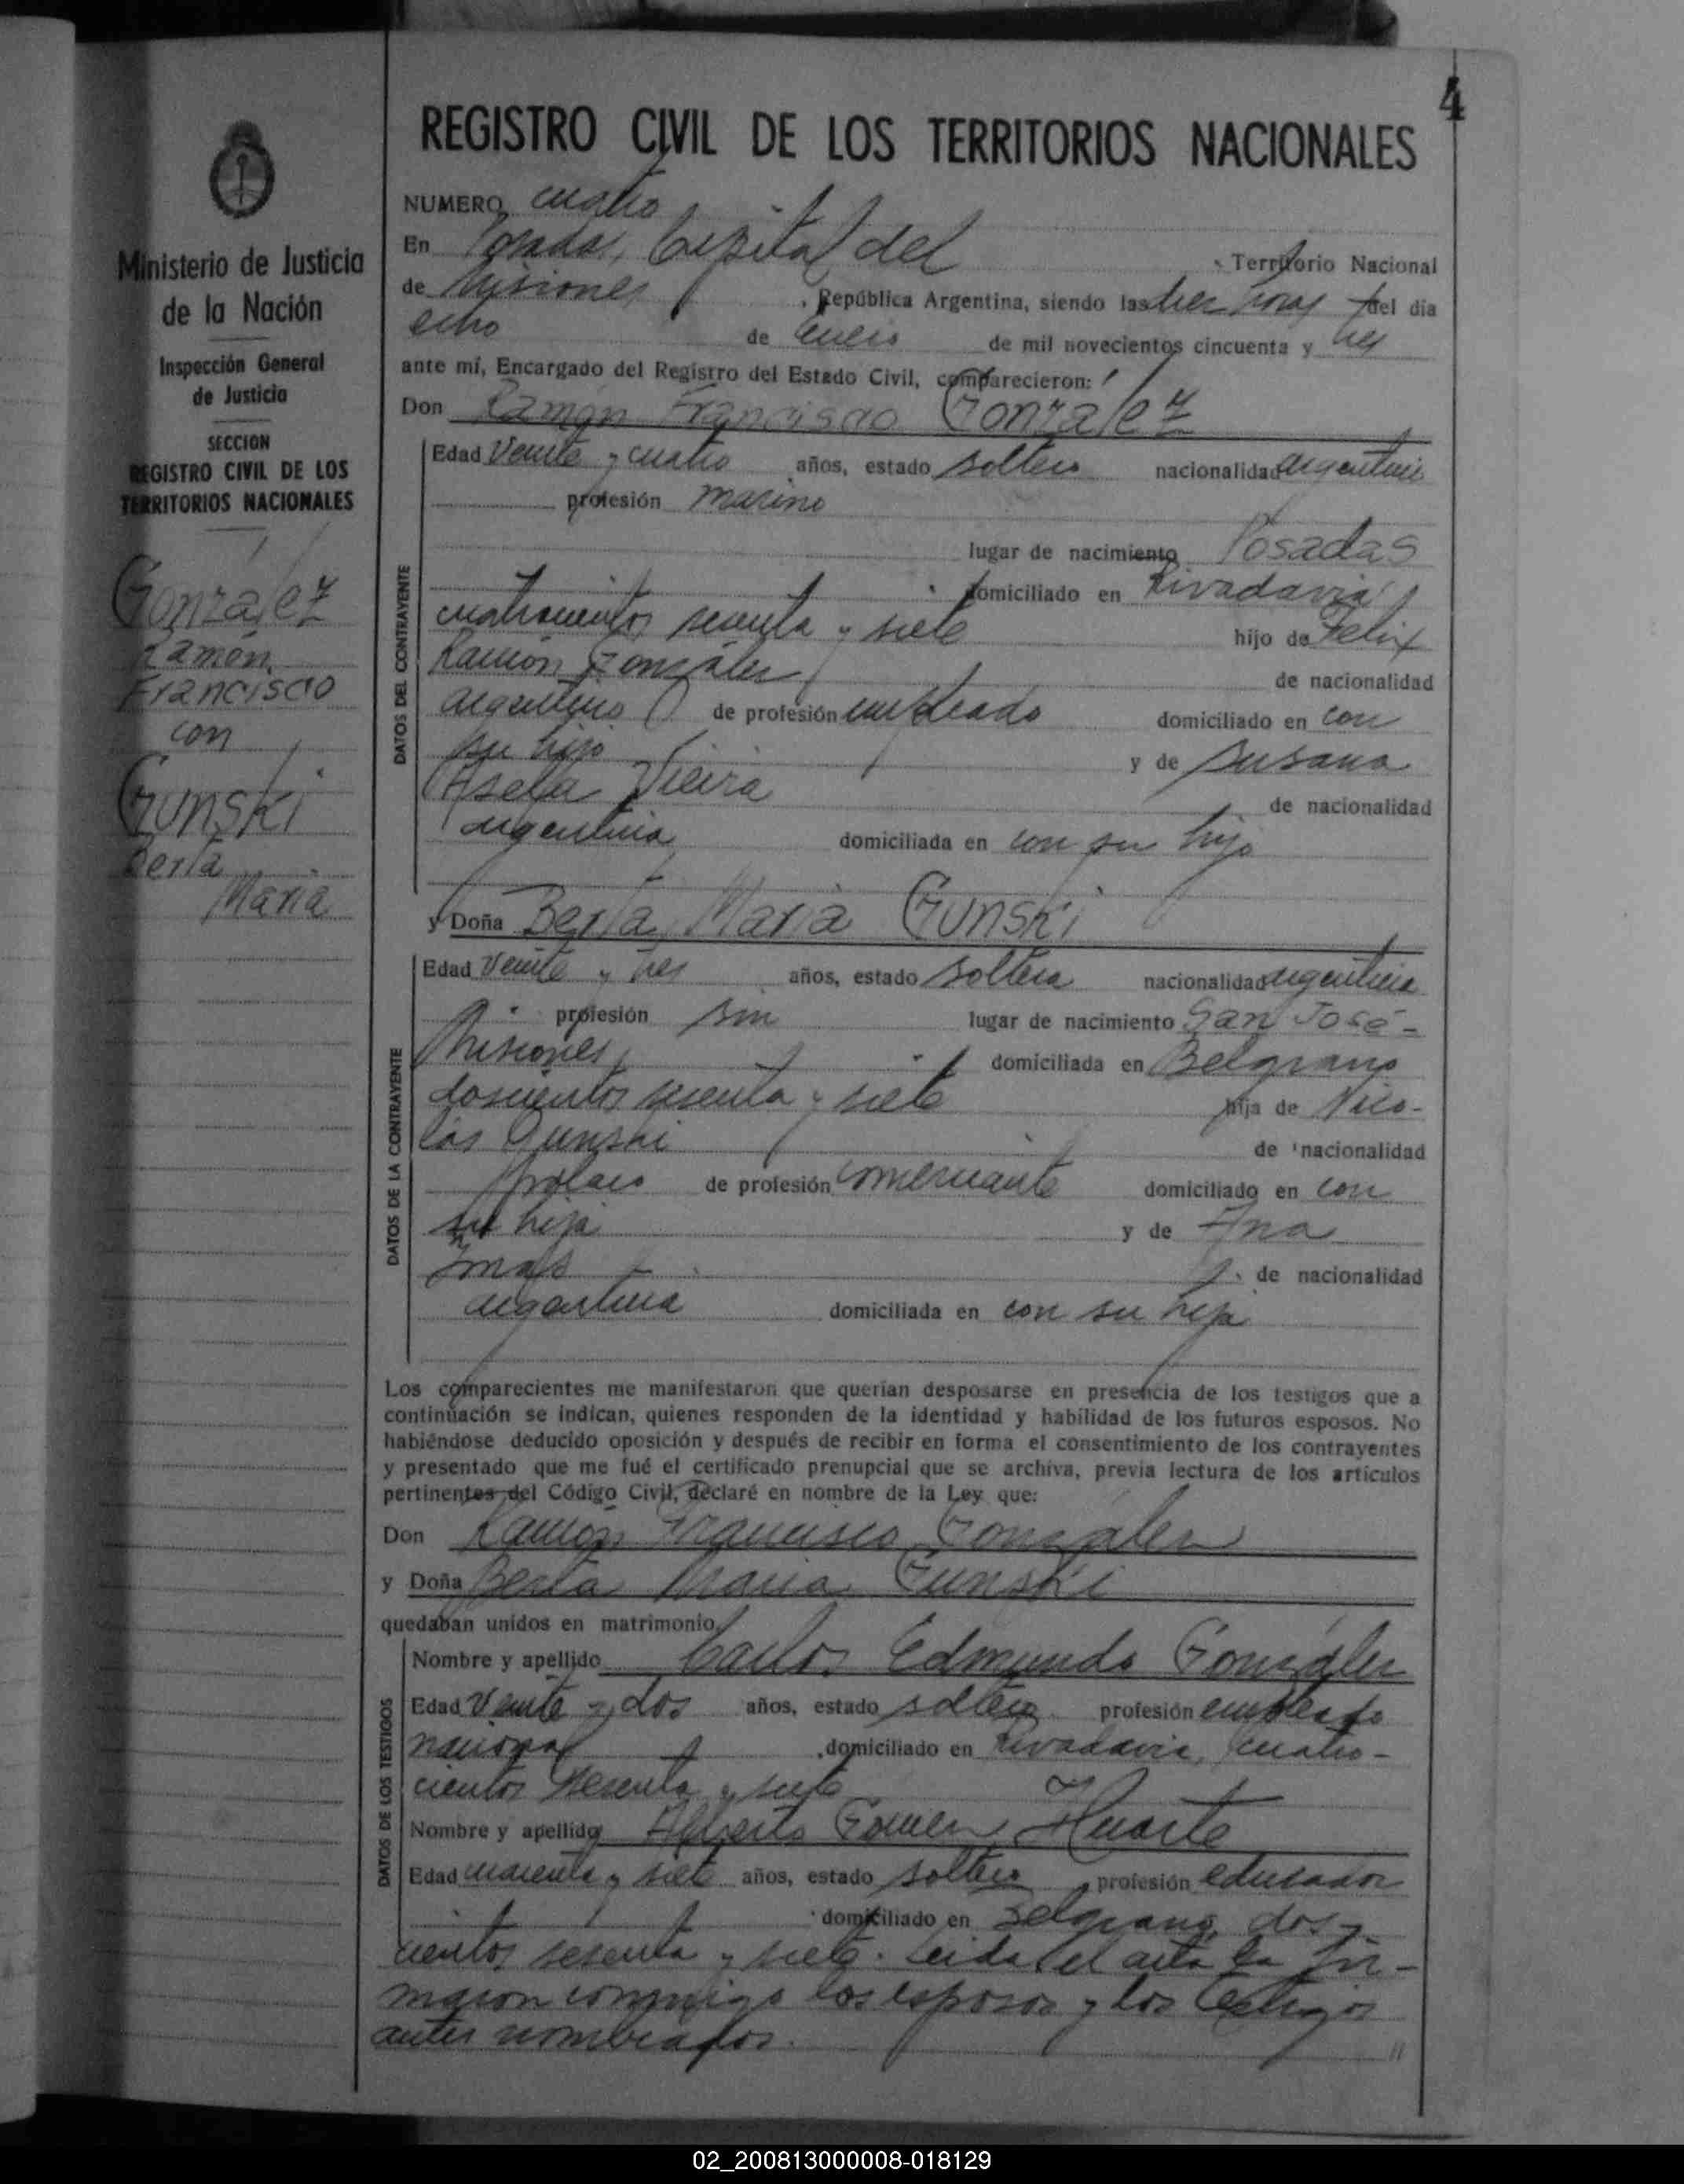 4
REGISTRO CIVIL DE LOS TERRITORIOS NACIONALES
Ministerio de Justicia
de la Nación
Inspección General
de Justicia
SECCION
REGISTRO CIVIL DE LOS
TERRITORIOS NACIONALES
Gonzalez
Ramón
Francisco
con
Gunski
Berta
Maria
NUMERO cuatro
En Posadas, Capital del Territorio Nacional
de Misiones, República Argentina, siendo las tres horas del dia
ocho de Enero de mil novecientos cincuenta y tres
ante mí, Encargado del Registro del Estado Civil, comparecieron:
Don Ramón Francisco Gonzalez
DATOS DEL CONTRAYENTE
Edad Veinte y cuatro años, estado soltero nacionalidad argentino
profesión marino
lugar de nacimiento Posadas
domiciliado en Rivadavia
cuatrocientos sesenta y siete hijo de Felix
Ramón González de nacionalidad
argentino de profesión empleado domiciliado en con
su hijo y de Susana
Asela Vieira de nacionalidad
argentina domiciliada en con su hijo
y Doña Berta Maria Gunski
DATOS DE LA CONTRAYENTE
Edad Veinte y tres años, estado soltera nacionalidad argentina
profesión sin lugar de nacimiento San José-
Misiones domiciliada en Belgrano
doscientos sesenta y siete hija de Nico-
lás Gunski de nacionalidad
polaco de profesión comerciante domiciliado en con
su hija y de Ana
de nacionalidad
argentina domiciliada en con su hija
Los comparecientes me manifestaron que querían desposarse en presencia de los testigos que a
continuación se indican, quienes responden de la identidad y habilidad de los futuros esposos. No
habiéndose deducido oposición y después de recibir en forma el consentimiento de los contrayentes
y presentado que me fué el certificado prenupcial que se archiva, previa lectura de los artículos
pertinentes del Código Civil, declaré en nombre de la Ley que:
Don Ramón Francisco González
y Doña Berta Maria Gunski
quedaban unidos en matrimonio
DATOS DE LOS TESTIGOS
Nombre y apellido Carlos Edmundo González
Edad Veinte y dos años, estado soltero profesión empleado
nacional domiciliado en Rivadavia, cuatro-
cientos sesenta y siete
Nombre y apellido Alberto Gomez Huarte
Edad cuarenta y siete años, estado soltero profesión educador
domiciliado en Belgrano, dos-
cientos sesenta y siete. Leida el acta la fir-
maron conmigo los esposos y los testigos
antes nombrados.
02_200813000008-018129